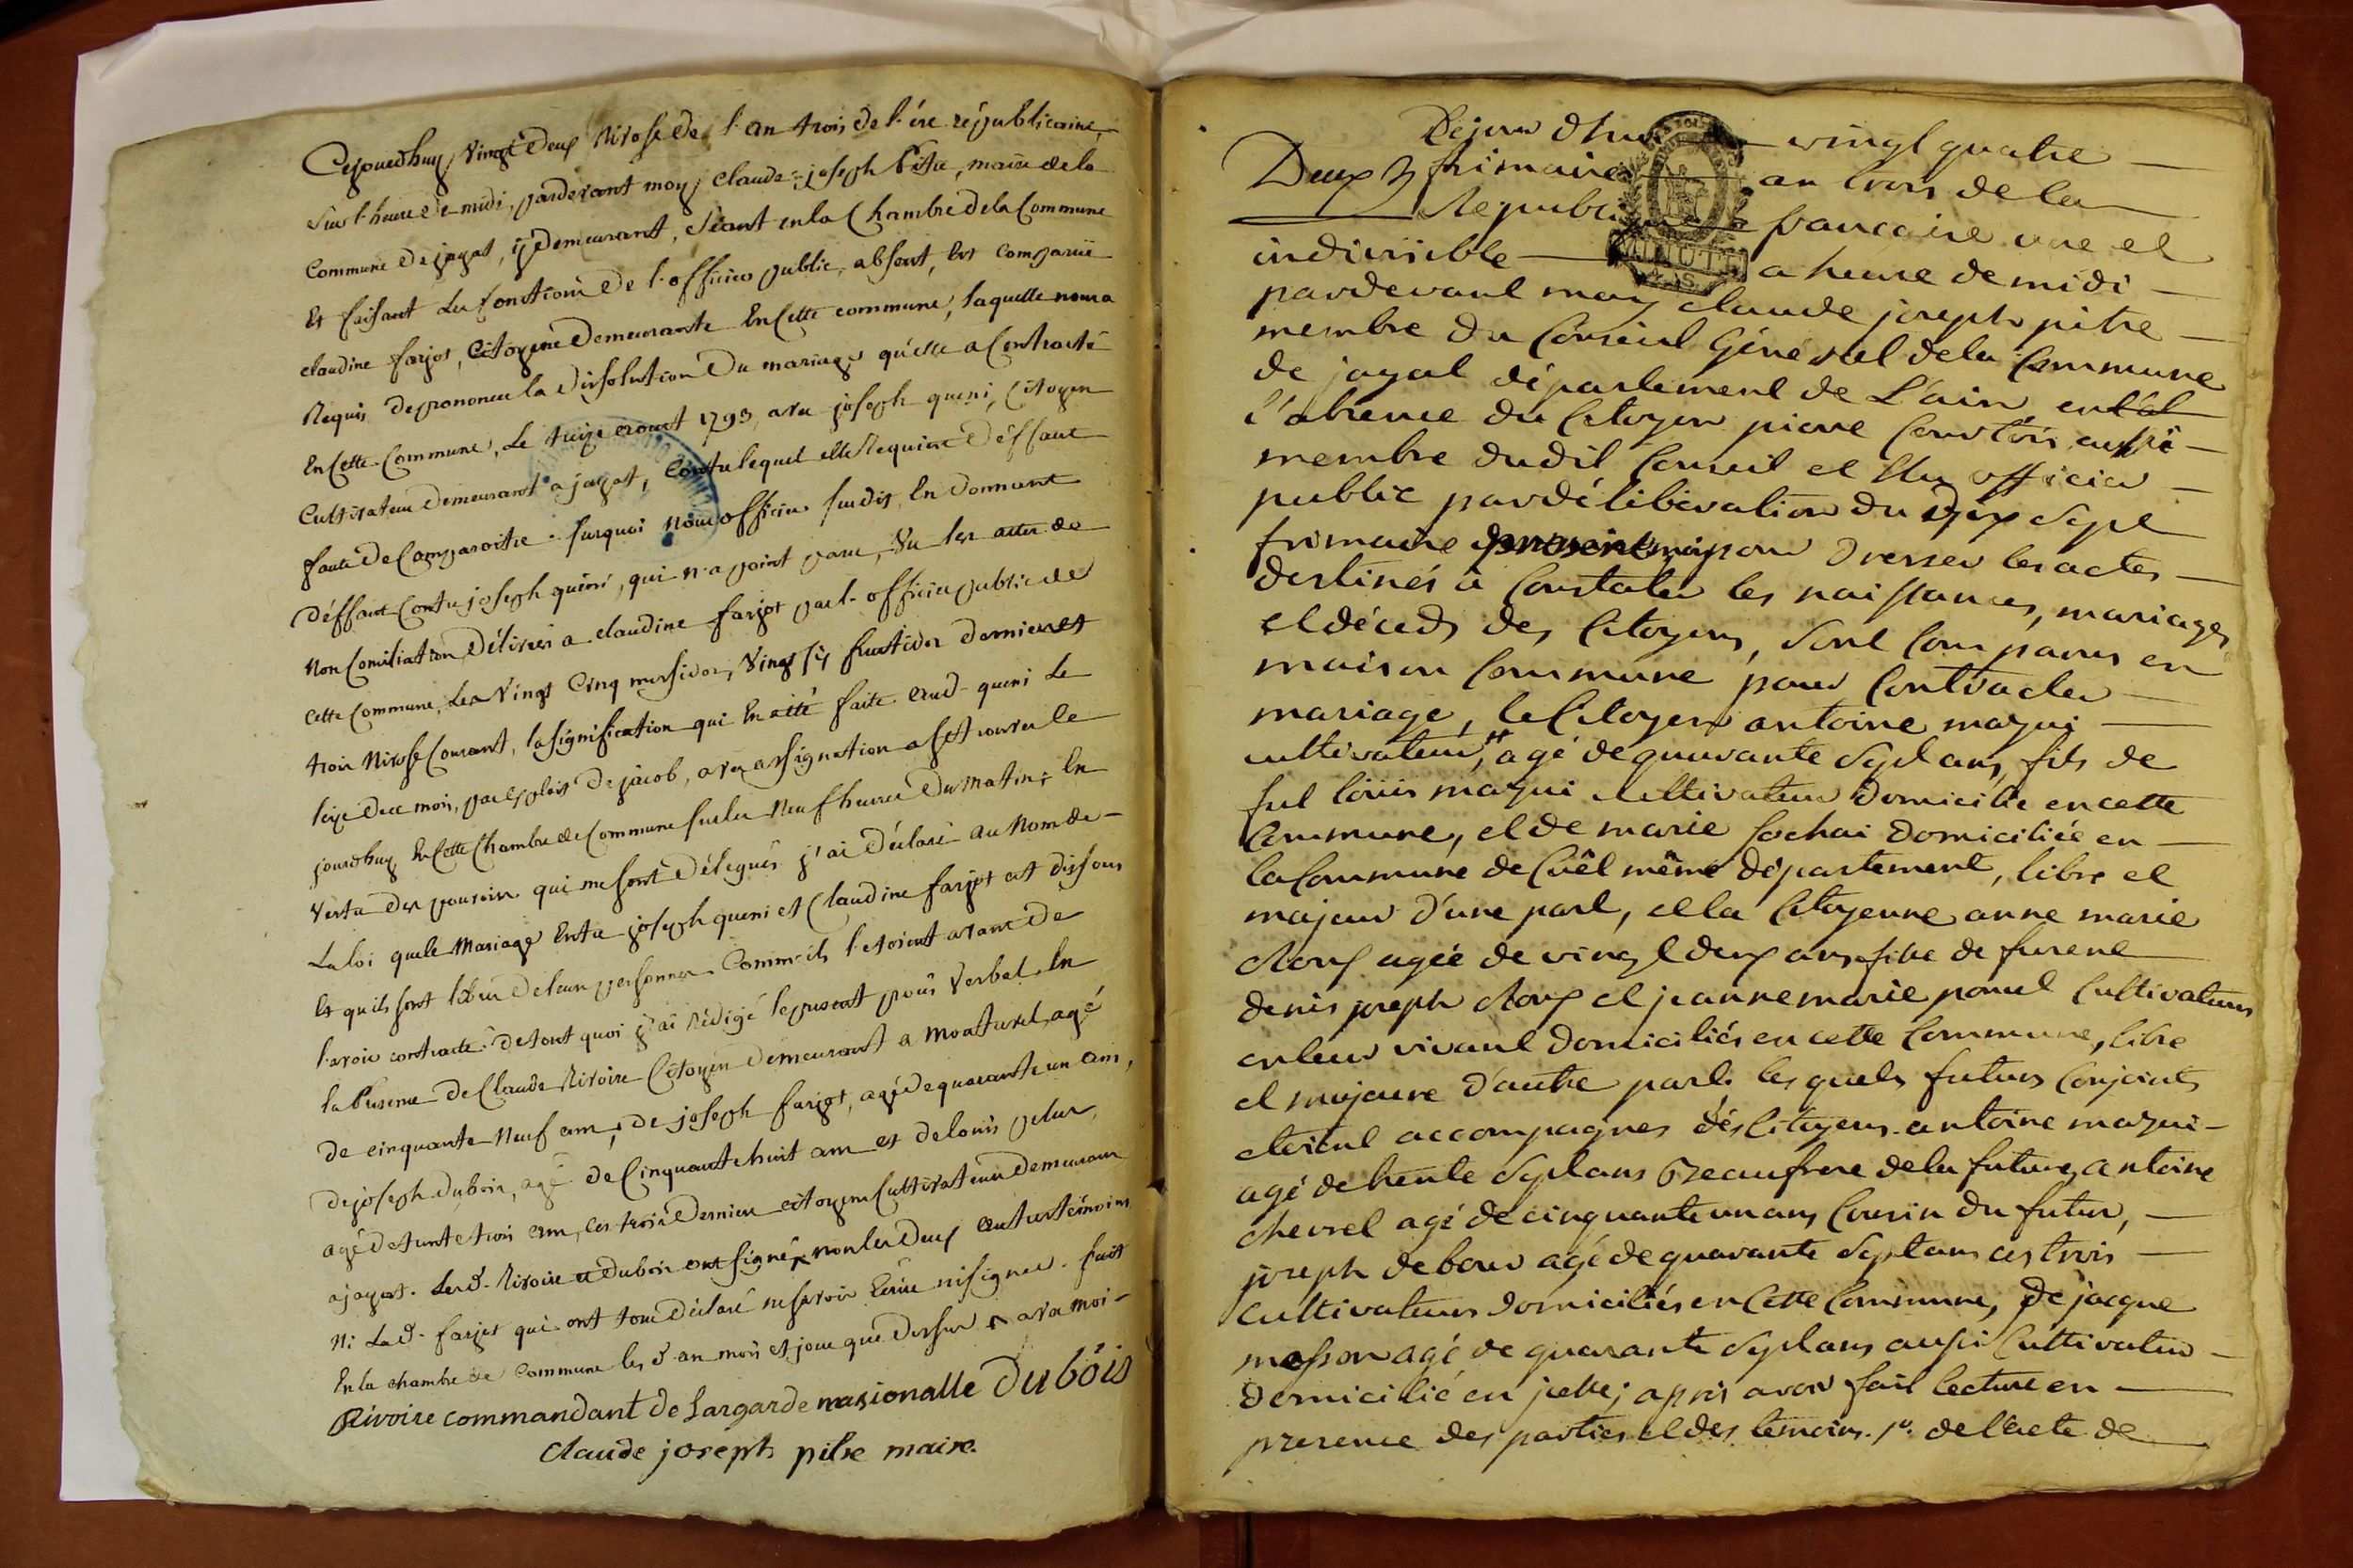 Cejourdhuy vingt deux Nivose de l'an trois de l'ére républicaine,
Sur l'heure de midi, pardevant moy claude-joseph Pitre, maire de la
Commune de jayat, y demeurant, Séant en la Chambre de la Commune
Et faisant les fonctions de l'officier public, absent, Est comparüe
claudine farjot, citoyene demeurante En Cette commune, laquelle nous a
Requis de prononcer la dissolution du mariage qu'elle a Contracté
En Cette Commune, Le treize aoust 1793, avec joseph queni, Citoyen
Cultivateur demeurant a jayat, Contre lequel elle Requiert déffaut
faute de Comparoitre. surquoi Nous officier susdit, En donnant
déffaut Contre joseph queni, qui n'a point paru, Vu les actes de
Non Conciliation délivrés a claudine farjot par l'officier public de
cette Commune, Les Vingt Cinq messidor, Vingt six fructidor dernier et
trois Nivose Courant, la signification qui En a été faite aud. queni Le
seize du mois, par exploit de jacob, avec assignation a
jourdhuy En Cette Chambre de Commune sur les Neuf heures du matin; En
Vertu des pouvoirs qui me sont délégués j'ai déclaré au Nom de
La loi que le Mariage Entre joseph queni et Claudine farjot est dissous
Et qu'ils sont libres de leurs personnes Comme ils l'etoient avant de
l'avoir contracté. de tout quoi j'ai rédigé le present procès Verbal En
la Presence de Claude Rivoire Citoyen demeurant a montrevel, agé
de cinquante Neuf ans, de joseph farjot, agé de quarante un ans,
de joseph dubois, agé de Cinquante huit ans et de louis
agé de trente trois ans, ces trois derniers citoyens Cultivateurs demeurans
a jayat. Les d. Rivoire et dubois ont signé, non les deux autres témoins
Ni La d. farjot qui ont tous déclaré ne savoir Ecrire ni signer. fait
En la chambre de Commune les d. an mois et jour que dessus avec moi
Rivoire commandant de Largarde nasionalle Dubois
claude joseph pitre maire.
Cejour d'hui vingt quatre
Deux frimaire an trois de la
Republique francaise une et
indivisible a heure de midi
MINUTE
pardevant moy claude joseph pitre
membre du Conseil Général de la Commune
de jayat département de L'ain, en
l'absence du Citoyen piere Courtois aussi
membre dudit Conseil et Elu officier
public par délibération du dix sept
frimaire pour dresser les actes
destinés à Constater les naissances, mariages
et déceds des Citoyens, sont Comparus en
maison Commune pour Contracter
mariage, le Citoyen antoine mazui
cultivateur, agé de quarante sept ans, fils de
fut loüis mazui cultivateur domicilié en cette
Commune, et de marie sochai domiciliée en
la Commune de Cuêt même département, libre et
majeur d'une part, et la Citoyenne anne marie
agée de vingt deux ans fille de furent
denis joseph et jeanne marie Cultivateurs
en leur vivant domiciliés en cette Commune, libre
et majeure d'autre part. les quels futurs Conjoints
etoient accompagnés des Citoyens antoine mazui
agé de trente sept ans Beaufrere de la future, antoine
chevrel agé de cinquante un ans Cousin du futur,
joseph debour agé de quarante sept ans ces trois
Cultivateurs domiciliés en Cette Commune, De jacque
agé de quarante sept ans aussi Cultivateur
domicilié en icelle; apres avoir fait lecture en
presence des parties et des temoins. 1°. de l'acte de